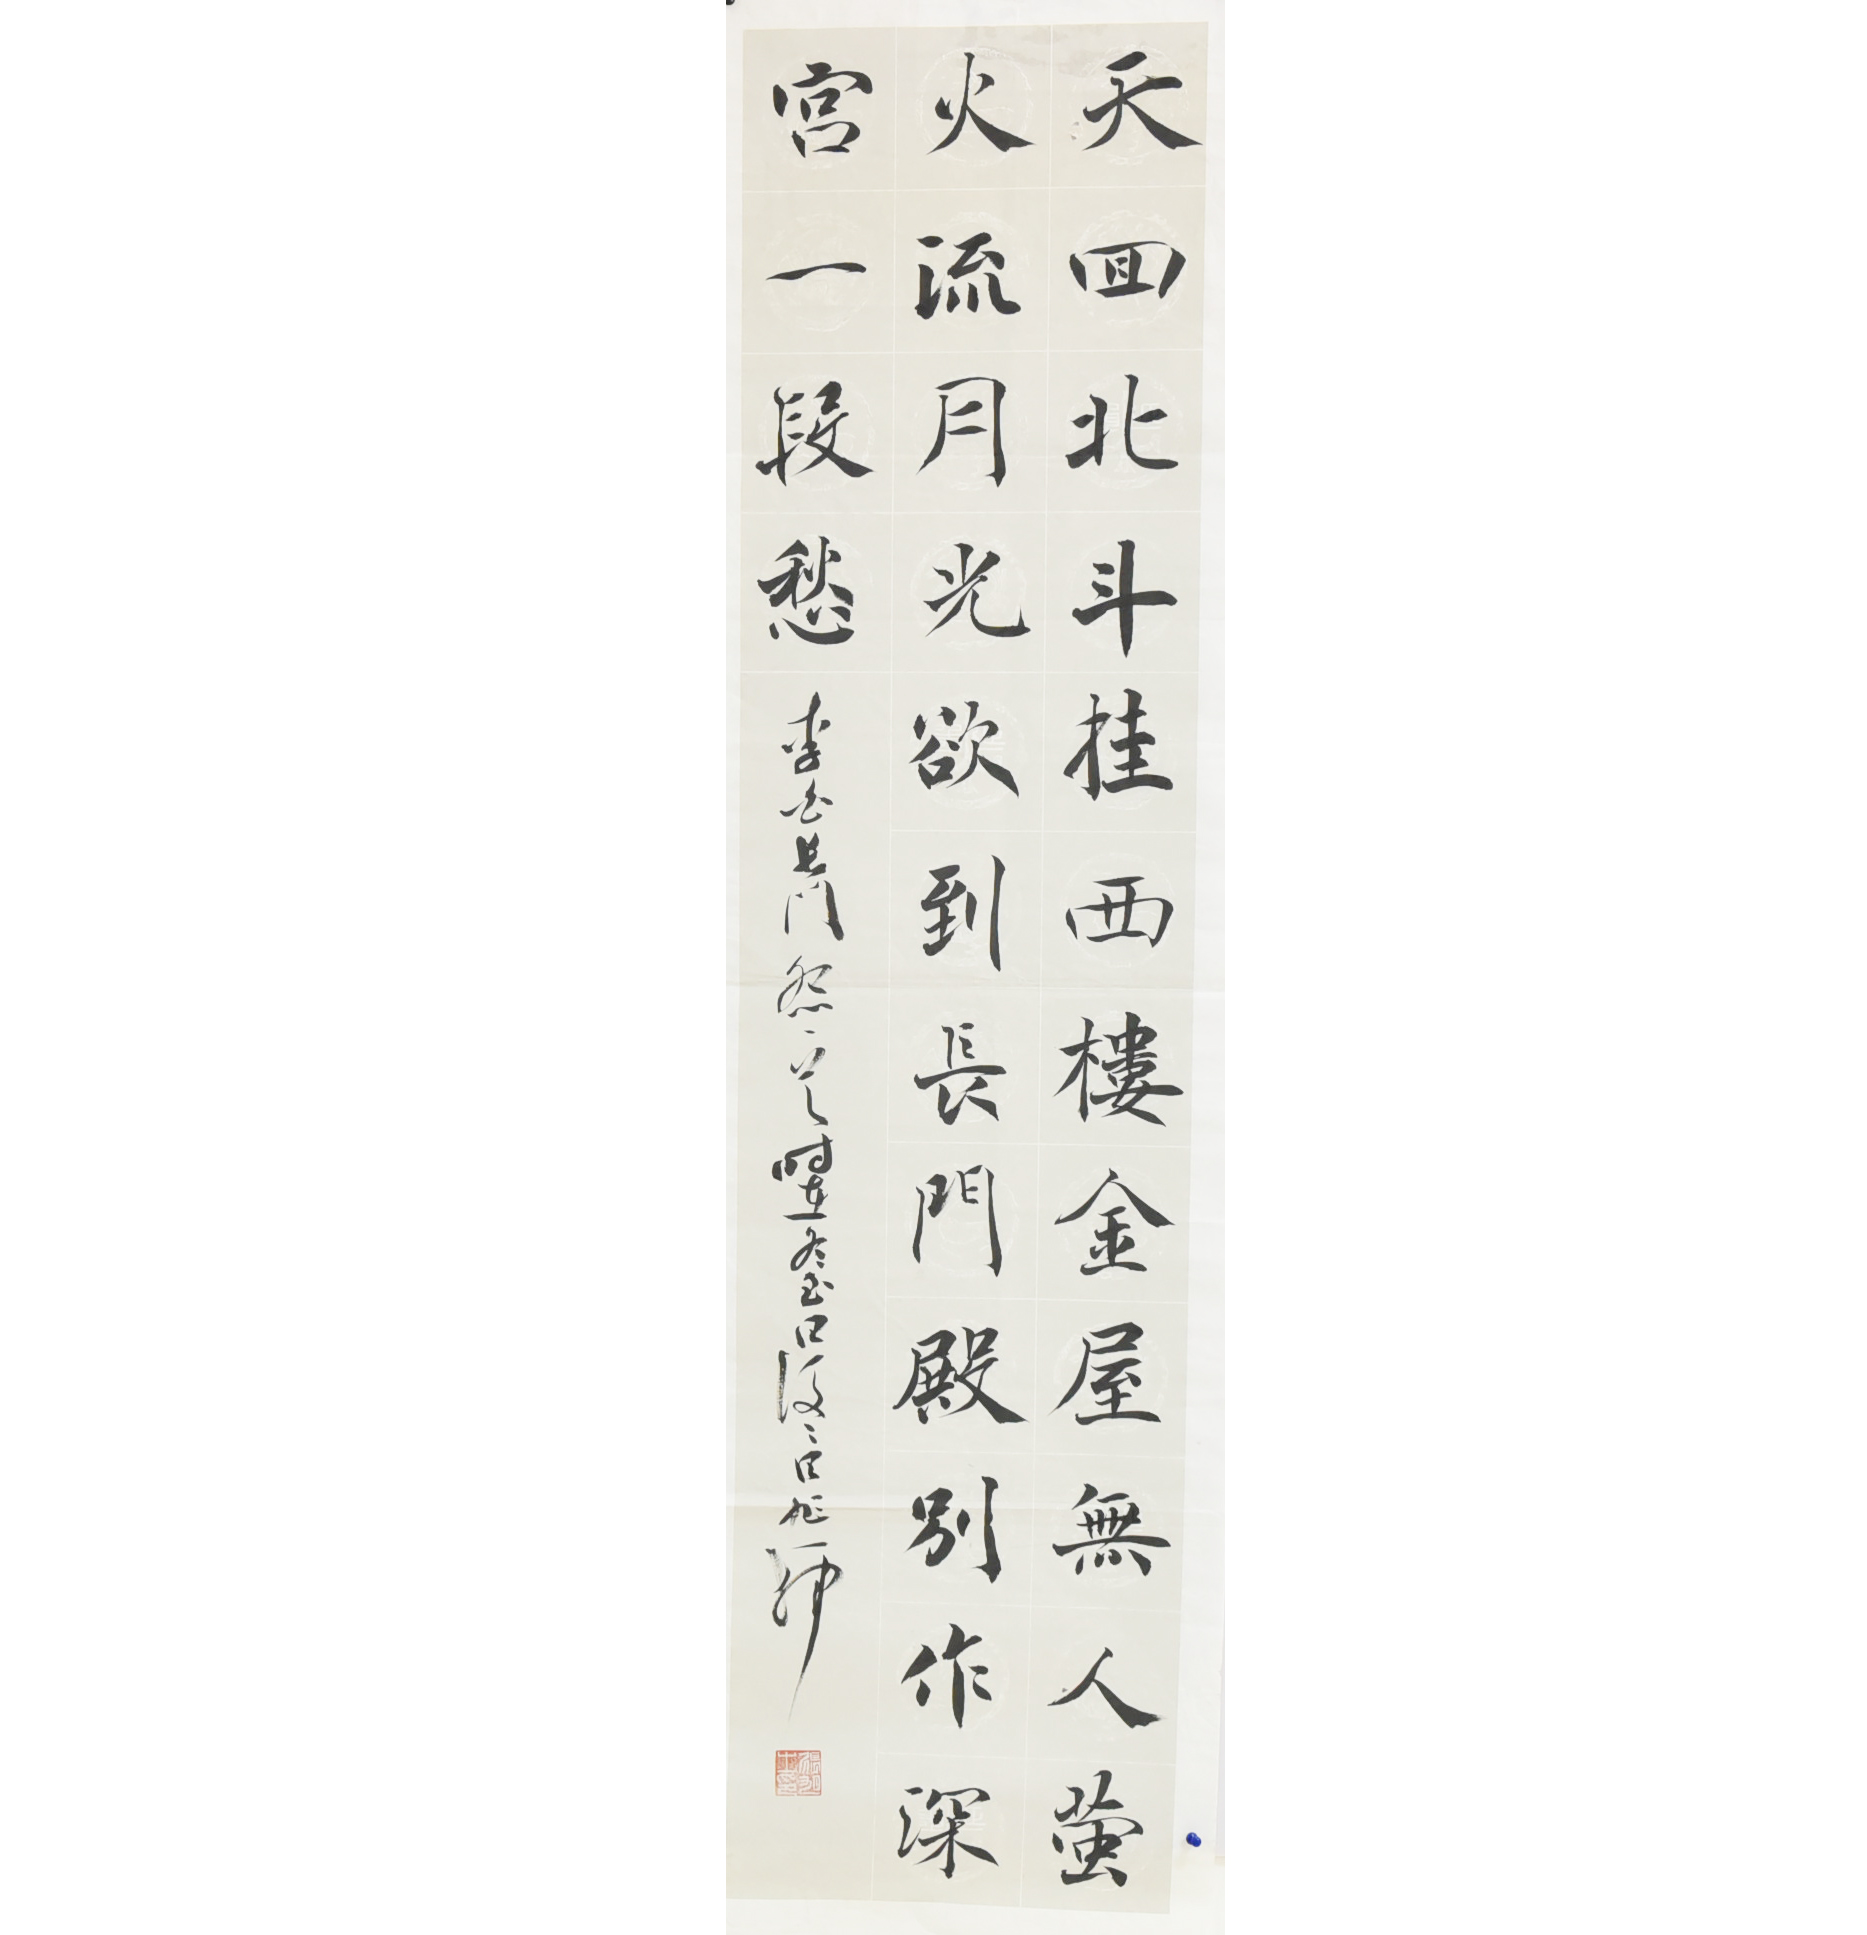 天回北斗挂西樓金屋無人萤
火流月光欲到長門殿別作深
宮一段愁
李白長門怨一首